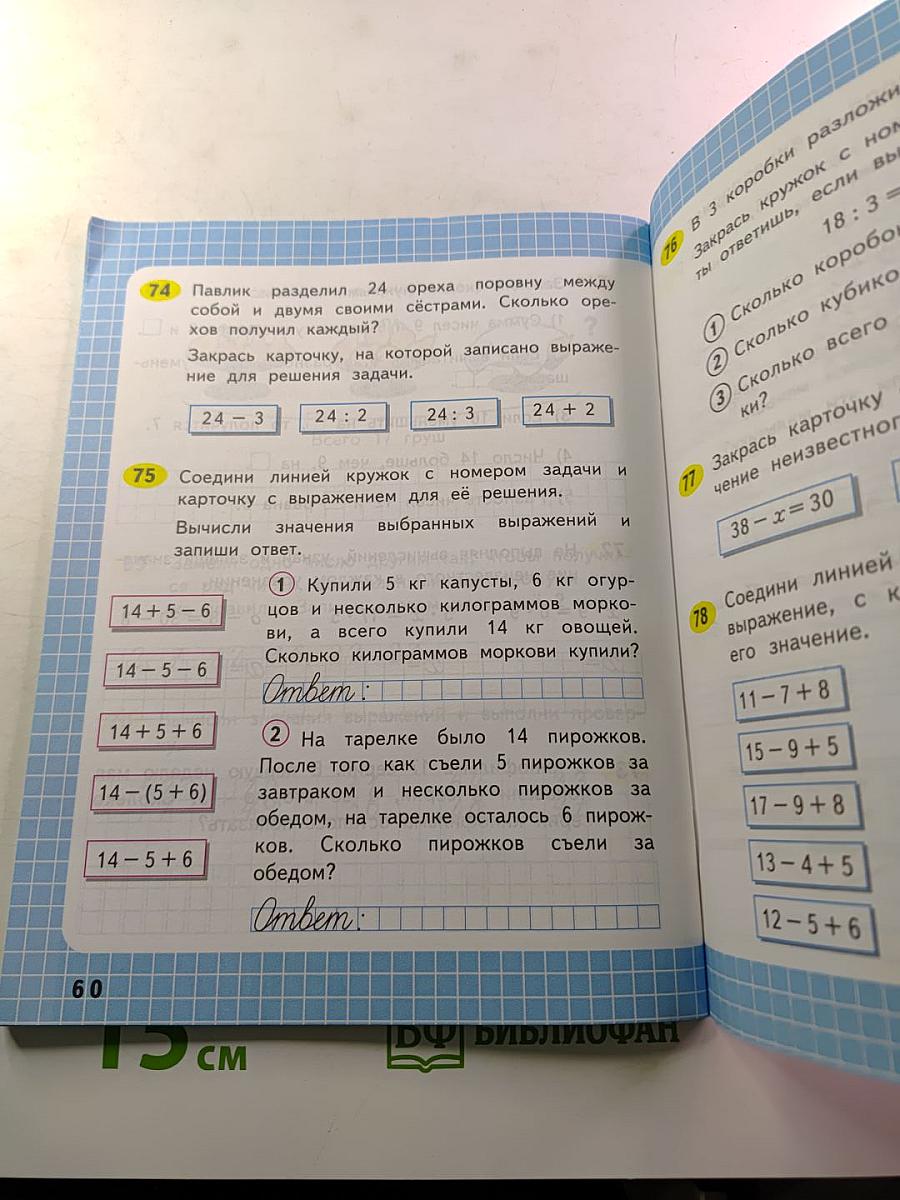 74 Павлик разделил 24 ореха поровну между
собой и двумя своими сёстрами. Сколько оре-
хов получил каждый?
Закрась карточку, на которой записано выраже-
ние для решения задачи.
24 − 3 24 : 2 24 : 3 24 + 2
75 Соедини линией кружок с номером задачи и
карточку с выражением для её решения.
Вычисли значения выбранных выражений и
запиши ответ.
14 + 5 − 6
14 − 5 − 6
14 + 5 + 6
14 − (5 + 6)
14 − 5 + 6
1 Купили 5 кг капусты, 6 кг огур-
цов и несколько килограммов морко-
ви, а всего купили 14 кг овощей.
Сколько килограммов моркови купили?
Ответ:
2 На тарелке было 14 пирожков.
После того как съели 5 пирожков за
завтраком и несколько пирожков за
обедом, на тарелке осталось 6 пирож-
ков. Сколько пирожков съели за
обедом?
Ответ:
60
76 В 3 коробки разложи
Закрась кружок с ном
ты ответишь, если вы
18 : 3 =
1 Сколько коробо
2 Сколько кубико
3 Сколько всего
ки?
77 Закрась карточку
чение неизвестног
38 − x = 30
78 Соедини линией
выражение, с к
его значение.
11 − 7 + 8
15 − 9 + 5
17 − 9 + 8
13 − 4 + 5
12 − 5 + 6
15 см
БФ БИБЛИОФАН